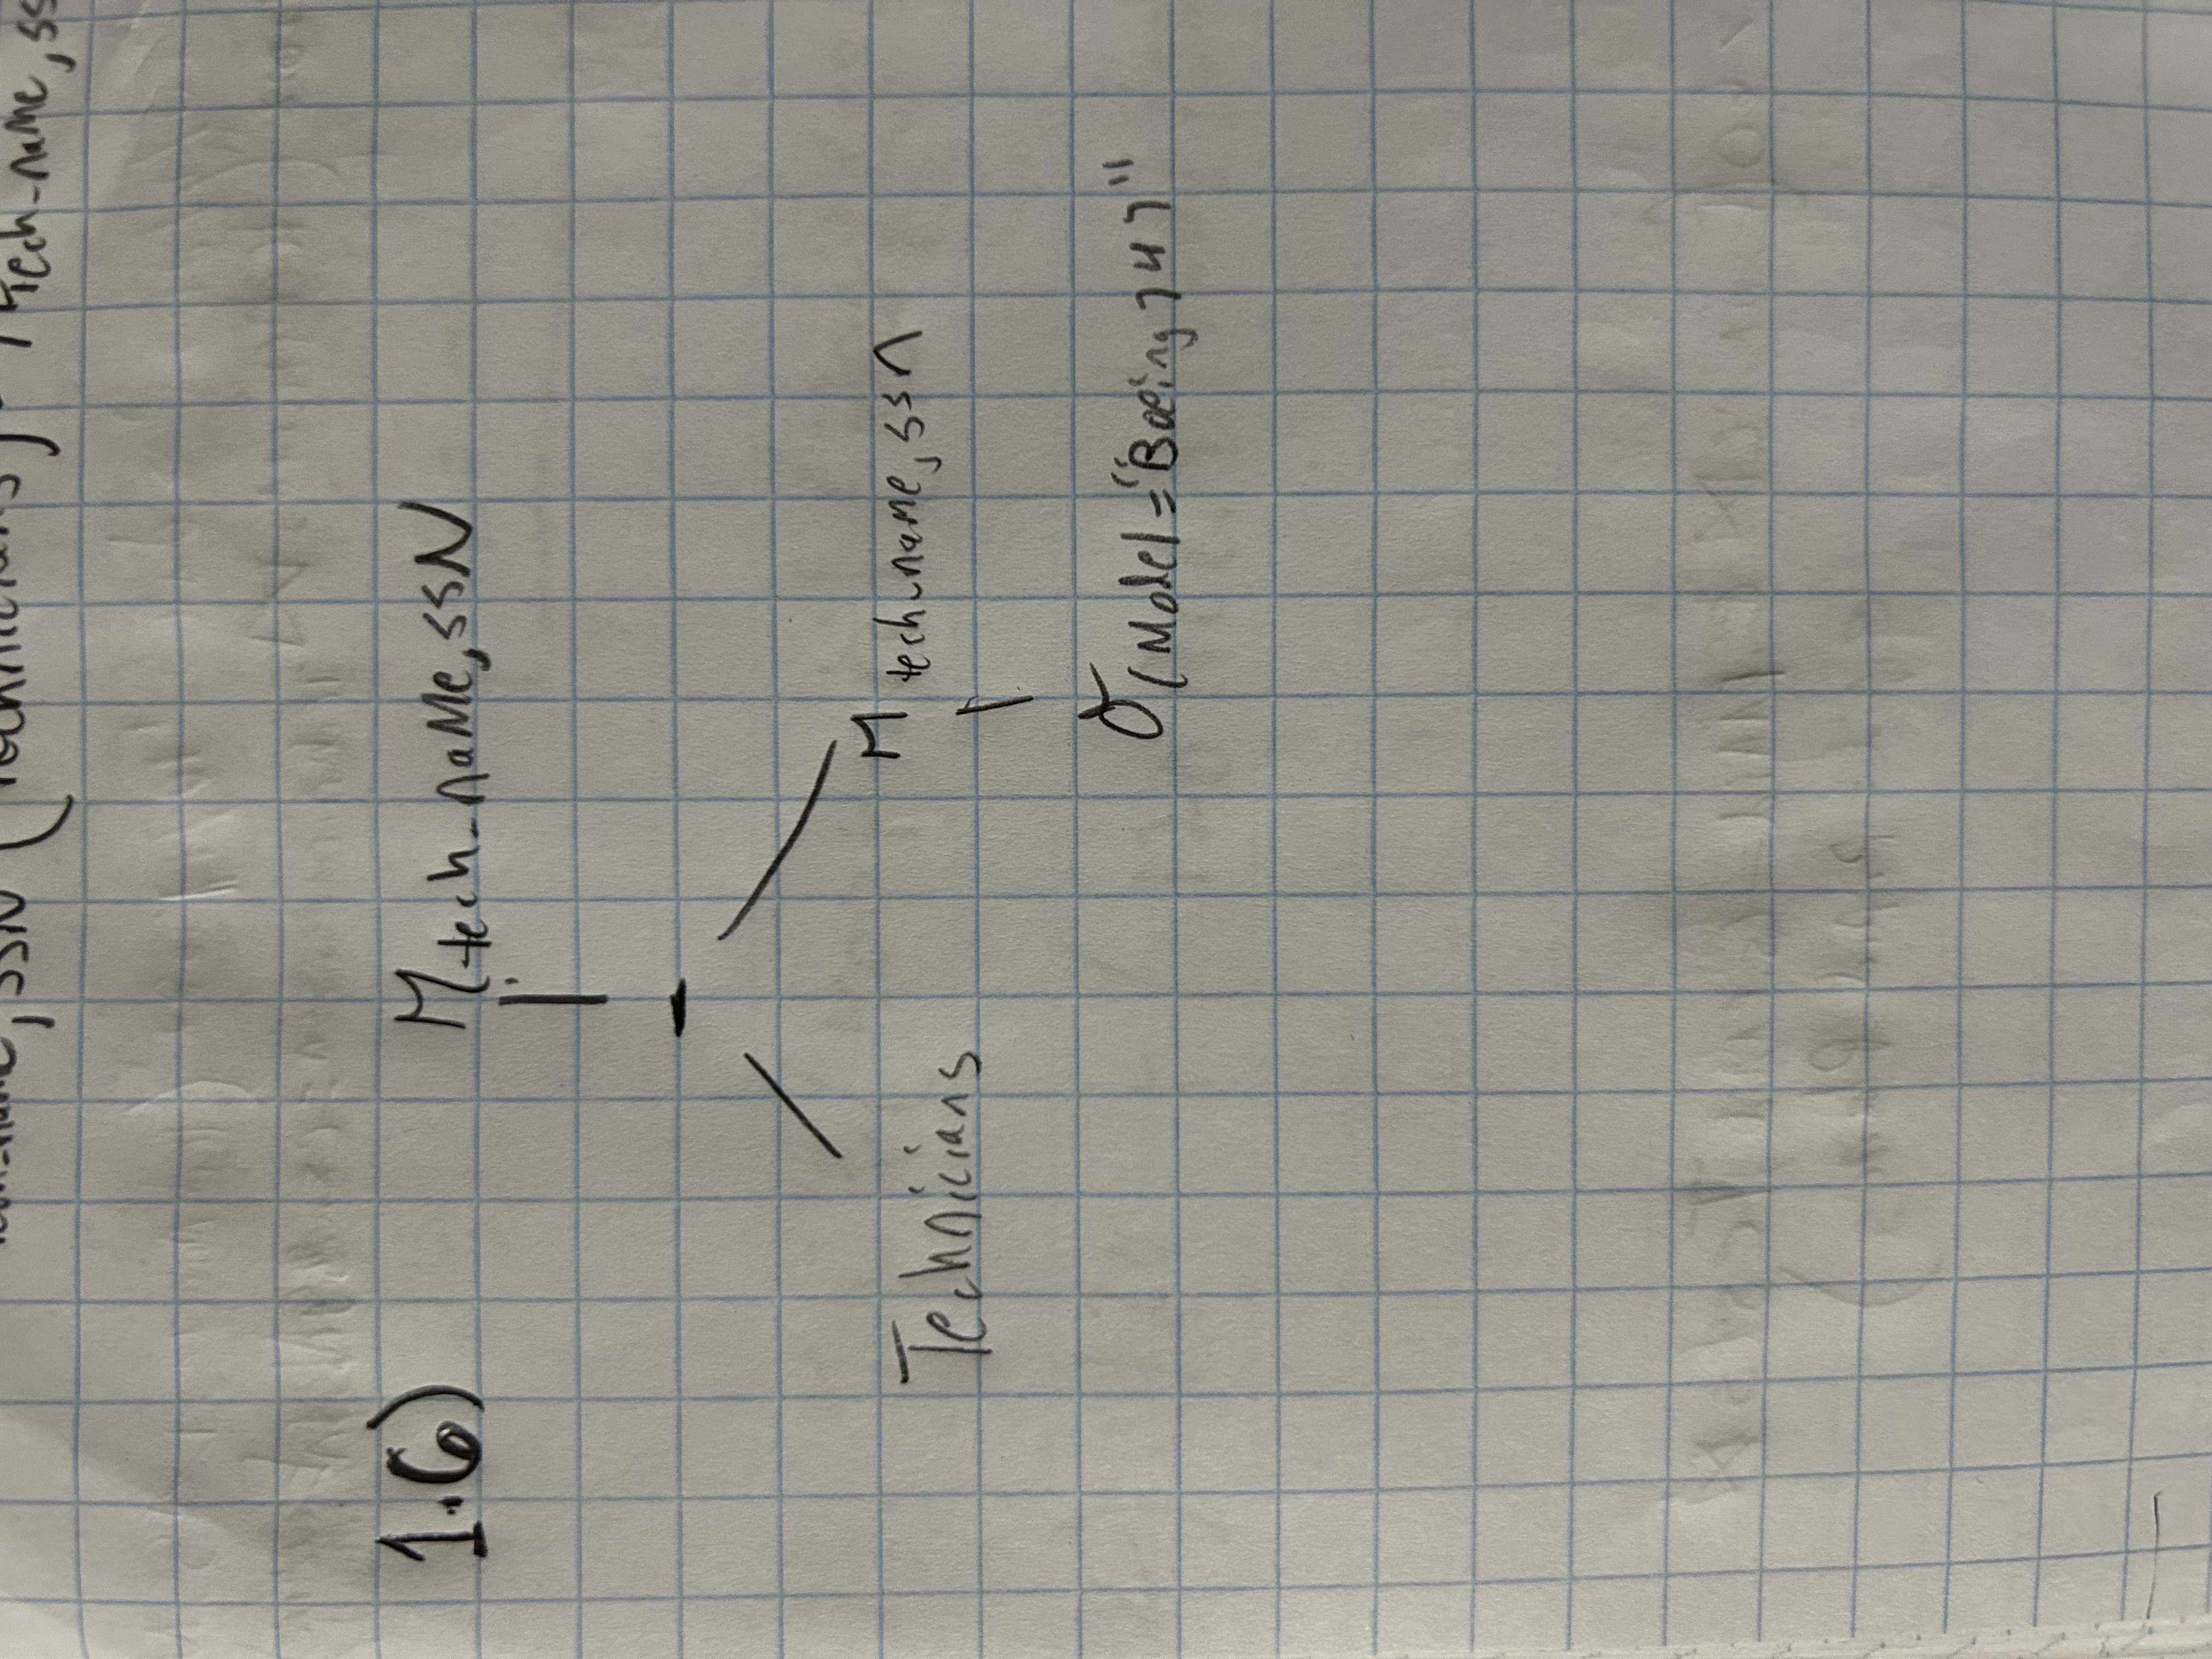 tech_name, SSN (Technicians) - π tech_name, ss
1.6) π tech_name, SSN
-
Technicians
π tech_name, ssn
σ (Model = "Boeing 747"